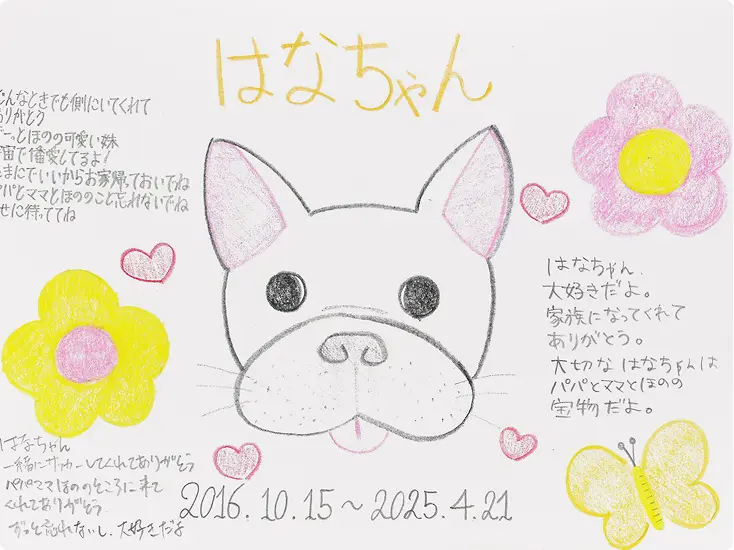 はなちゃん
んなときでも側にいてくれて
りがとう
ーっとほのの可愛い妹
宙で1番愛してるよ!
きにでいいからお家帰っておいでね
パとママとほののこと忘れないでね
せに待っててね
はなちゃん、
大好きだよ。
家族になってくれて
ありがとう。
大切なはなちゃんは
パパとママとほのの
宝物だよ。
はなちゃん
一緒に してくれてありがとう
パパママほののところに来て
くれてありがとう
ずっと忘れないし、大好きだよ
2016.10.15～2025.4.21